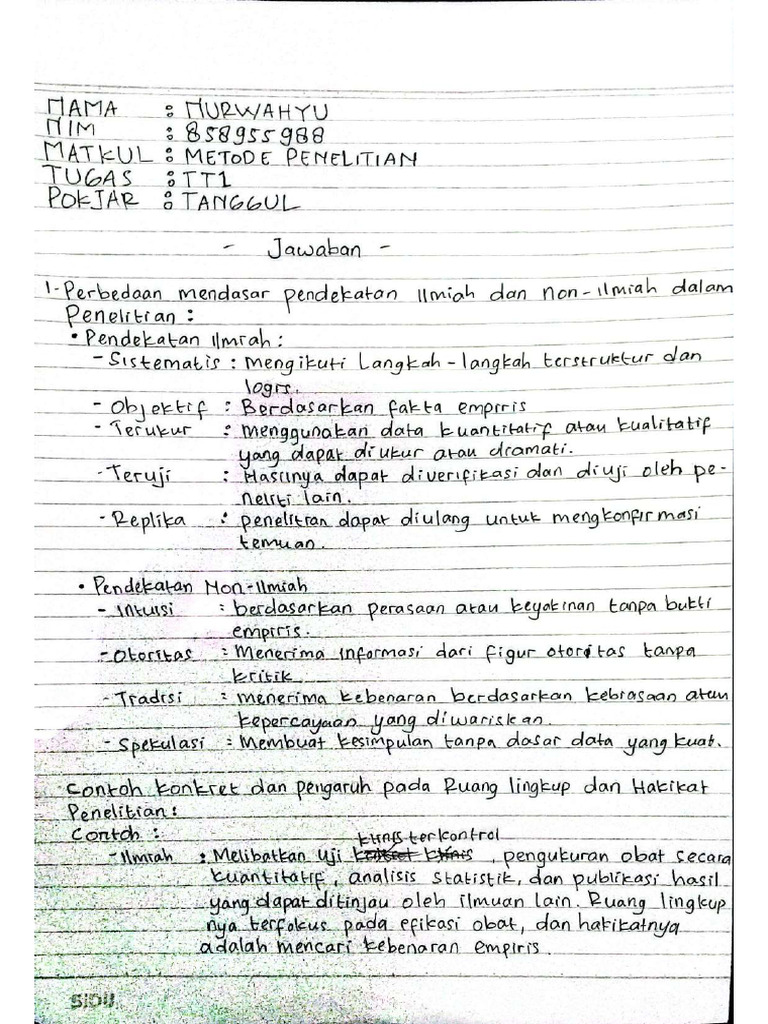 NAMA : NURWAHYU
NIM : 858955988
MATKUL : METODE PENELITIAN
TUGAS : TT1
POKJAR : TANGGUL
- Jawaban -
1. Perbedaan mendasar pendekatan Ilmiah dan non-Ilmiah dalam
Penelitian :
• Pendekatan Ilmiah :
- Sistematis : Mengikuti Langkah-langkah terstruktur dan
logis.
- Objektif : Berdasarkan fakta empiris
- Terukur : menggunakan data kuantitatif atau kualitatif
yang dapat diukur atau dramati.
- Teruji : Hasilnya dapat diverifikasi dan diuji oleh pe-
neliti lain.
- Replika : penelitian dapat diulang untuk mengkonfirmasi
temuan.
• Pendekatan Non-Ilmiah
- Intuisi : berdasarkan perasaan atau keyakinan tanpa bukti
empiris.
- Otoritas : Menerima informasi dari figur otoritas tanpa
kritik
- Tradisi : menerima kebenaran berdasarkan kebiasaan atau
kepercayaan yang diwariskan.
- Spekulasi : Membuat kesimpulan tanpa dasar data yang kuat.
Contoh konkret dan pengaruh pada Ruang lingkup dan Hakikat
Penelitian :
Contoh :
klinis terkontrol
- Ilmiah : Melibatkan uji , pengukuran obat secara
kuantitatif, analisis statistik, dan publikasi hasil
yang dapat ditinjau oleh ilmuan lain. Ruang lingkup
nya terfokus pada efikasi obat, dan hakikatnya
adalah mencari kebenaran empiris.
SIDU